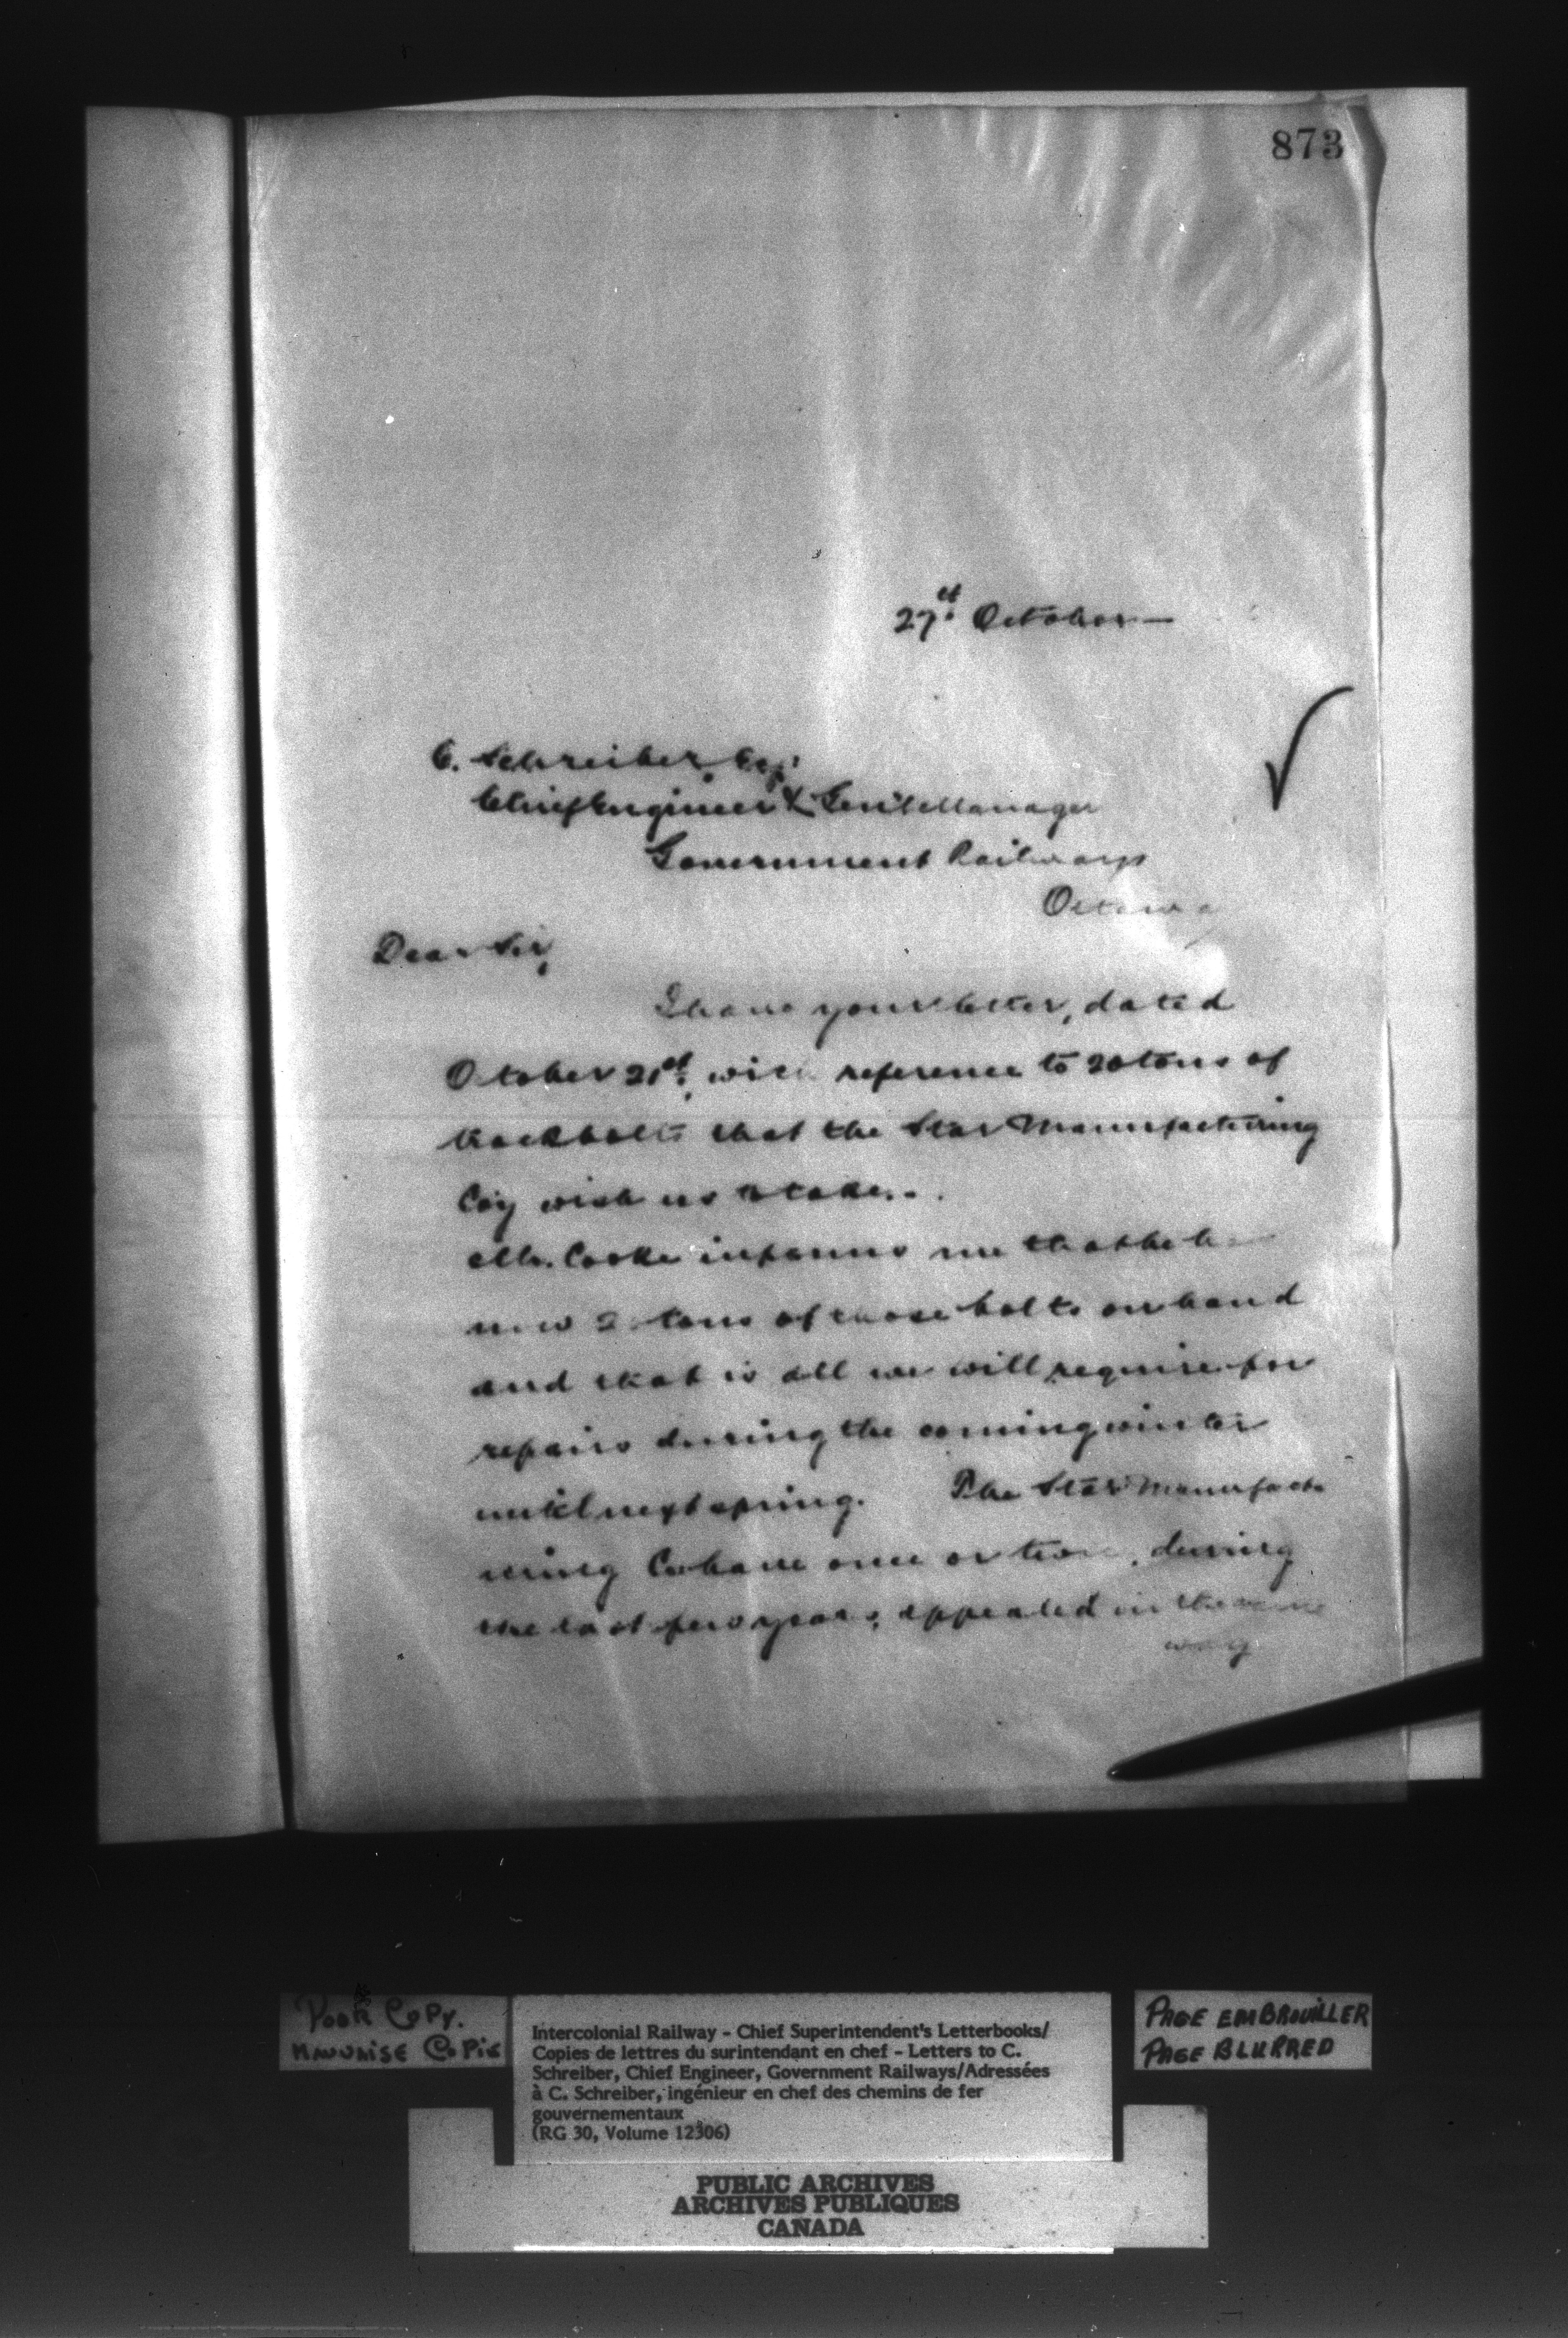 873
27st October —
C. Schreiber, Esq:
Chief Engineer & Gen'l Manager
Government Railways
Ottawa
Dear Sir,
I have your letter, dated
October 21st, with reference to 20 tons of
track bolts that the Star Manufacturing
Coy wish us to take.
Mr. Cooke informs me that he
now tons of those bolts on hand
and that is all we will require for
repairs during the coming winter
until next spring. The Star Manufact
uring Co. have once or twice, during
the last few years, appealed in the same
way
Poor Copy.
Mauvaise Copie
Intercolonial Railway - Chief Superintendent's Letterbooks/
Copies de lettres du surintendant en chef - Letters to C.
Schreiber, Chief Engineer, Government Railways/Adressées
à C. Schreiber, ingénieur en chef des chemins de fer
gouvernementaux
(RG 30, Volume 12306)
PAGE EMBROUILLER
PAGE BLURRED
PUBLIC ARCHIVES
ARCHIVES PUBLIQUES
CANADA